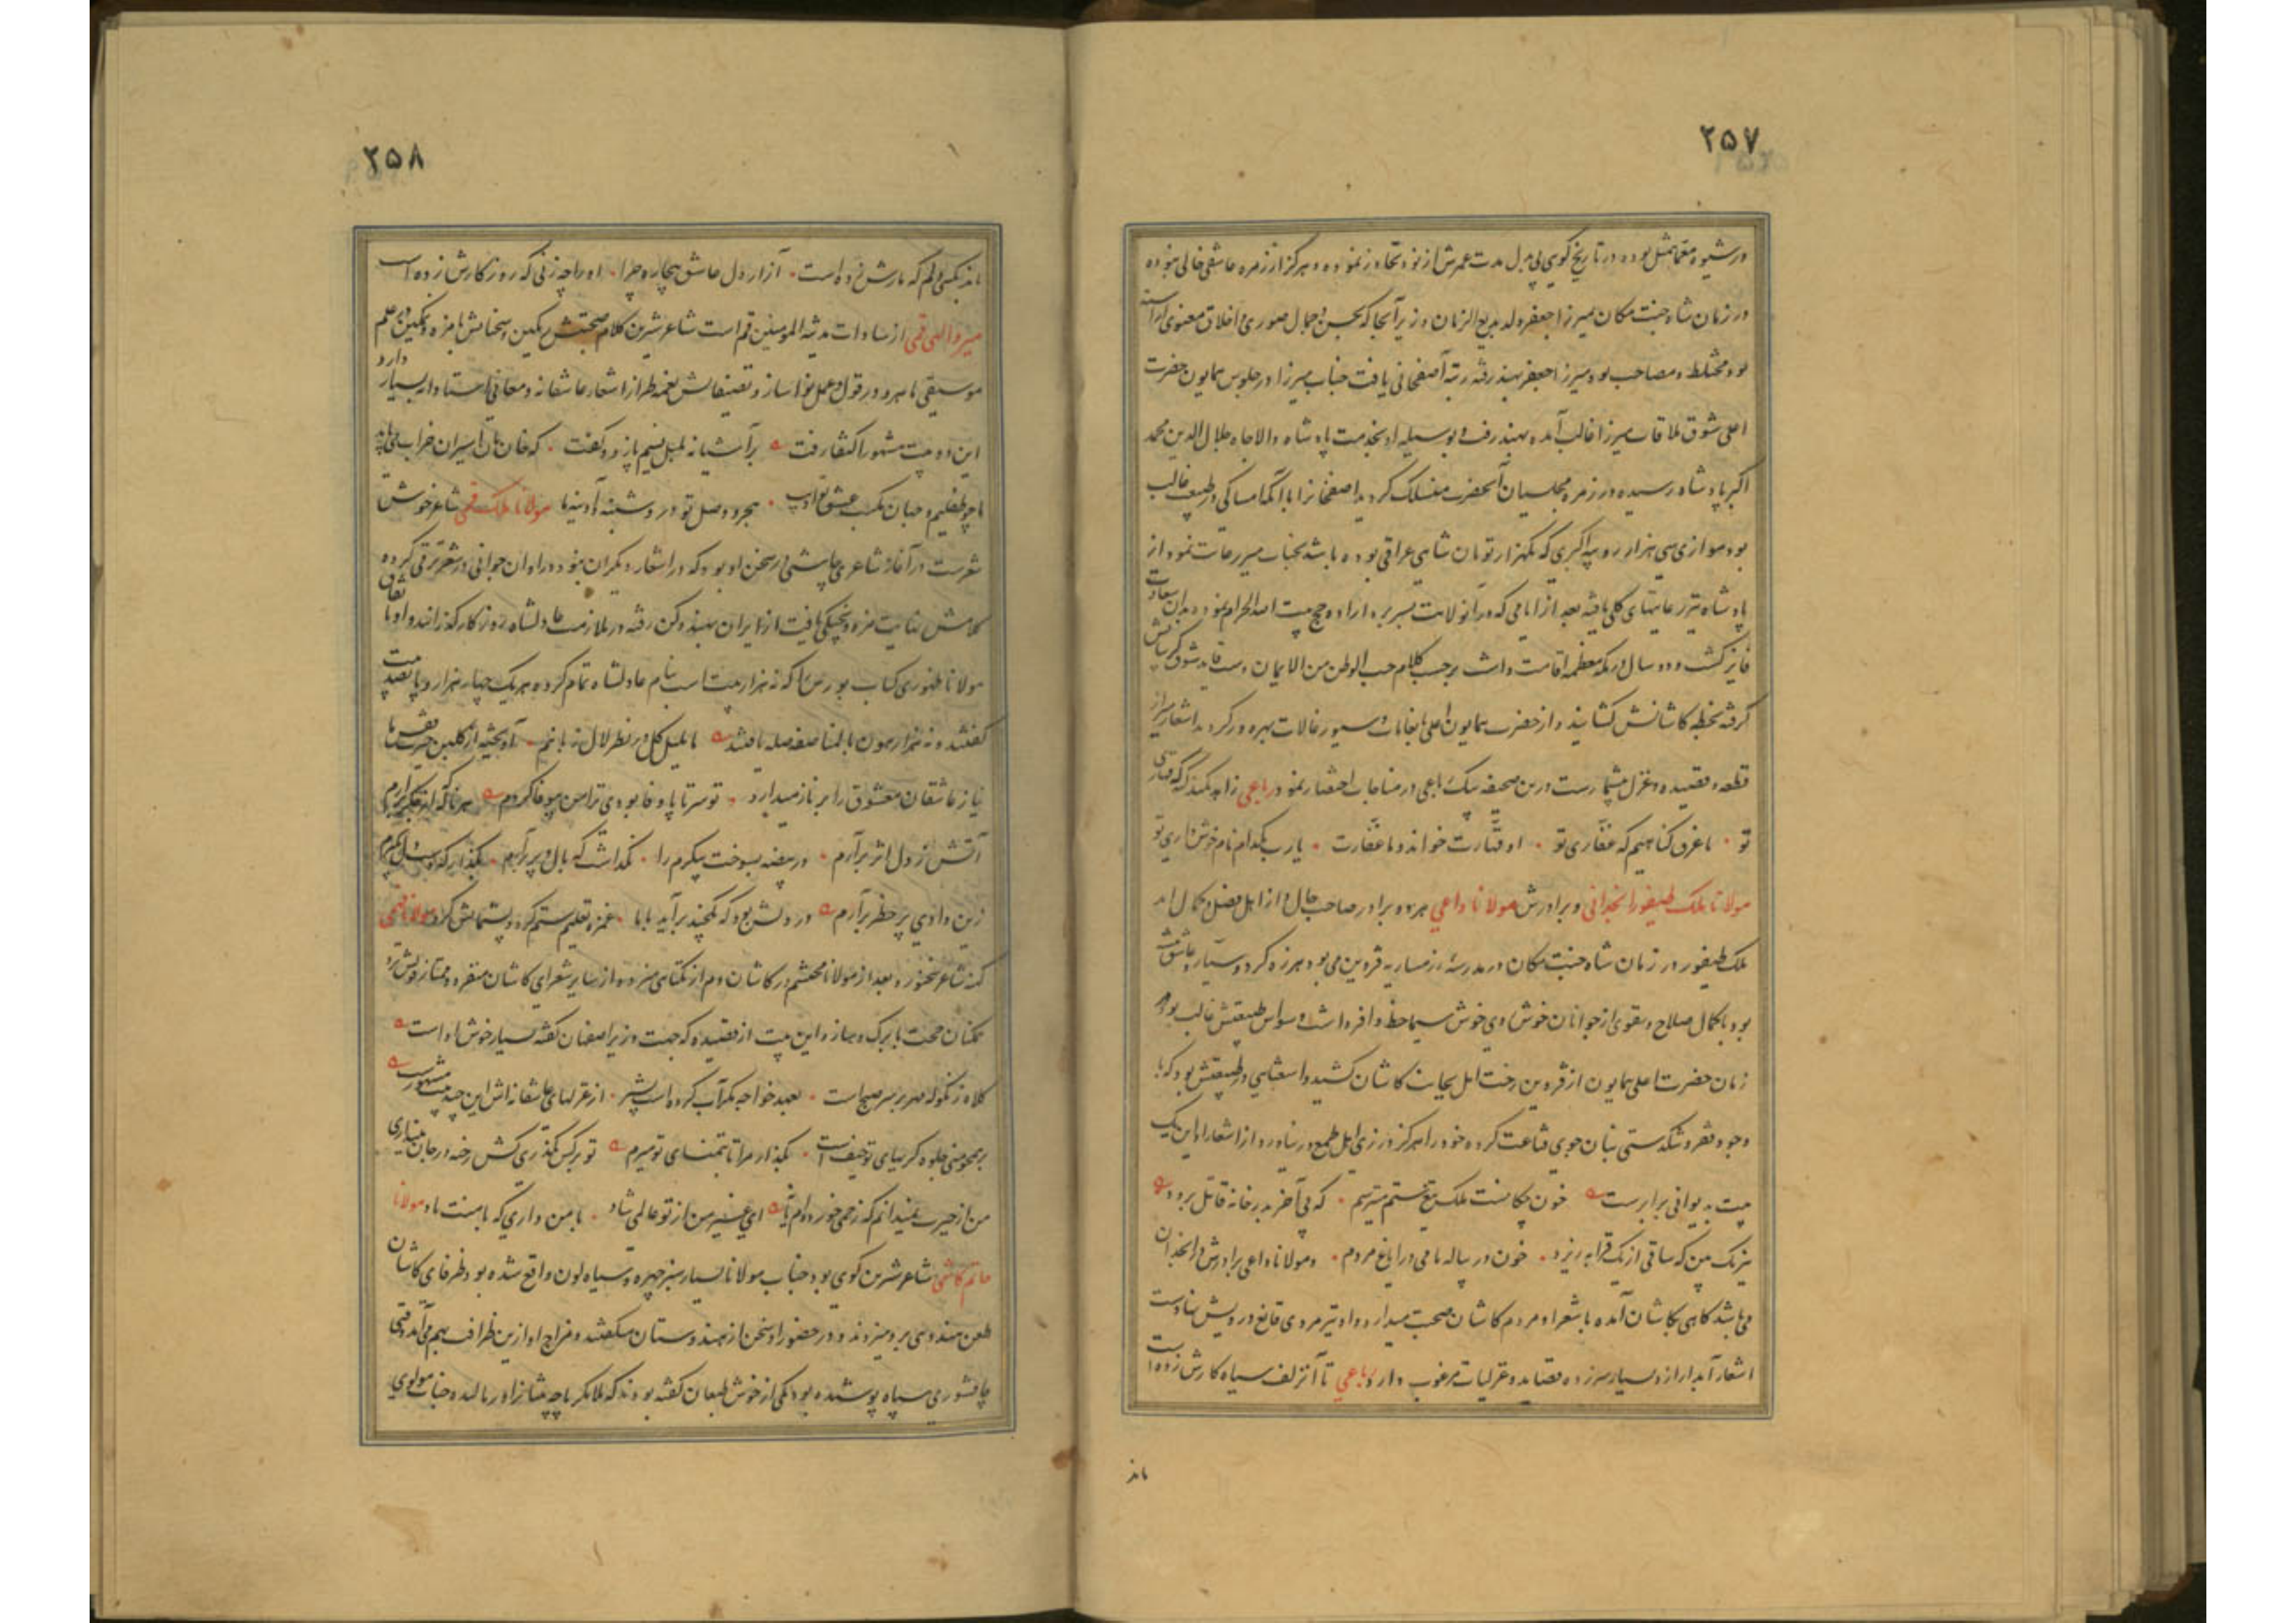 ۲۵۷
در شیوه معما بمثل بوده در تاریخ گویی بی بدل مدت عمرش از نود تجاوز نموده و هرگز از زمره عاشقی خالی نبوده
در زمان شاه جنت مکان بمیرزا جعفر ولد بدیع الزمان وزیر آنجا که بحسن و جمال صوری و اخلاق معنوی آراسته
بود مختلط و مصاحب بود میرزا جعفر بهند رفته رتبه آصفخانی یافت جناب میرزا در جلوس همایون حضرت
اعلی شوق ملاقات میرزا غالب آمده بهند رفت و بوسیله او بخدمت پادشاه والاجاه جلال الدین محمد
اکبر پادشاه رسیده در زمره مجلسیان آنحضرت منسلک گردید اصفخانرا با آنکه امساکی در طبیعت غالب
بود موازی سی هزار روپیه اکبری که یکهزار تومان شاهی عراقی بوده باشد بجناب میر رعایت نمود از
پادشاه نیز رعایتهای کلی یافته بعد از ایامی که در آنولایت بسر برد اراده حج بیت الله الحرام نموده بدان سعادت
فایز گشت و دو سال در مکه معظمه اقامت داشت بموجب کلام حب الوطن من الایمان دست قاید شوق گریبانش
گرفته بخطه کاشانش کشانید و از حضرت همایون اعلی بانعامات و سیورغالات بهره ور گردید اشعار میر از
قطعه و قصیده و غزل بیشمارست درین صحیفه بیک رباعی در مناجات اختصار نمود رباعی زاهد نکند گنه که قهاری
تو ۰ ما غرق گناهیم که غفاری تو ۰ او قهارت خواند و ما غفارت ۰ یارب بکدام نام خوش داری تو
مولانا ملک طیفور انجدانی و برادرش مولانا داعی هر دو برادر صاحب حال و از اهل فضل و کمال اند
ملک طیفور در زمان شاه جنت مکان در مدرسه قزوین می بود هرزه گرد و سیار و عاشق پیشه
بود با کمال صلاح و تقوی از جوانان خوش روی خوش سیما حظ وافر داشت و وسواس طبیعتش غالب بود در
زمان حضرت اعلی همایون از قزوین رخت بجانب کاشان کشید و استغنایی در طبیعتش بود که با
وجود فقر و تنگدستی بنان جوی قناعت کرده خود را هرگز در زی اهل طمع در نیاورد از اشعار او این یک
بیت بدیوانی برابرست خون چکانست ملک تیغ ستم میترسم ۰ که پی آخر بدر خانه قاتل برود
نیرنگ بین که ساقی از یک قرابه ریزد ۰ خون در پیاله ما می در ایاغ مردم ۰ و مولانا داعی برادرش در انجدان
می باشد گاهی بکاشان آمده با شعرا و مردم کاشان صحبت میدارد و او نیز مردی قانع درویش نهادست
اشعار آبدار ازو بسیار سرزده قصاید و غزلیات مرغوب دارد رباعی تا آنزلف سیاه کارش زده است
ماند
۲۵۸
ماند بکسی دلم که مارش زده است ۰ آزار دل عاشق بیچاره چرا ۰ او را چه زنی که روزگارش زده است
میر والهی قمی از سادات مدینة المومنین قم است شاعر شیرین کلام صحبتش رنگین و سخنانش بامزه و نمکین در علم
موسیقی ماهر و در قول و عمل نواساز و تصنیفاتش نغمه طراز اشعار عاشقانه و معانی استادانه بسیار دارد
این دو بیت مشهور اکتفا رفت بر آشیانه بلبل نسیم پا زد و گفت ۰ که خان و مان اسیران خراب می باید
ما چو طفلیم و جهان مکتب عشق تو ادیب ۰ هجر و وصل تو درو شنبه و آدینه ما مولانا ملک قمی شاعر خوش
شعرست در آغاز شاعری چاشنی در سخن او بود که در اشعار دیگران نبود در اوان جوانی در شعر ترقی کرده
کلامش نهایت مزه و پختگی یافت از ایران بهند و دکن رفته در ملازمت عادلشاه روزگار گذرانید و او با
مولانا ظهوری کتاب نورس را که نه هزار بیت است بنام عادلشاه تمام کرده هر یک چهار هزار و پانصد بیت
گفتند و نه هزار هون بالمناصفه صله یافتند ما بلبل گل در نظر لال زبانیم ۰ آویخته از گلبن حیرت قفس ما
نیاز عاشقان معشوق را بر ناز میدارد ۰ تو سر تا پا وفا بودی ترا من بیوفا کردم هر ناله کز جگر برآرم
آتش ز دل اثر برآرم ۰ در بیضه بسوخت پیکرم را ۰ نگذاشت که بال و پر برآرم ۰ بگذار که
زین وادی پر خطر برآرم در دلش بود که یکچند برآید با ما ۰ غمزه تعلیم ستم کرد و پشیمانش کرد مولانا فهمی
کهنه شاعر سخنور و بعد از مولانا محتشم در کاشان دم از یکتایی میزد و از سایر شعرای کاشان منفرد و ممتاز
همگنان صحبت با برگ و ساز و این بیت از قصیده که جهت وزیر اصفهان گفته بسیار خوش ادا است
کلاه زنگوله مهر بر سر صبح است ۰ بعهد خواجه مگر آب کرده است بشیر ۰ از غزلهای عاشقانه اش این چند بیت مشهورست
بر همچو منی جلوه گریهای تو حیف است ۰ بگذار مرا تا بتمنای تو میرم تو بر کس نگذری کش رخنه در جان نیندازی
من از حیرت نمیدانم که زخمی خورده ام یا نه ای غیر من از تو عالمی شاد ۰ با من داری که با منت باد مولانا
حاتم کاشی شاعر شیرین گوی بود جناب مولانا بسیار سبز چهره و سیاه لون واقع شده بود ظرفای کاشان
طعن هندویی برو میزدند و در حضور او سخن از هندوستان میگفتند و مزاج او ازین ظرافت بهم بر می آمد وقتی
چاقشوری سیاه پوشیده بود یکی از خوش طبعان گفته بودند که ملا مگر پاچه تنبانرا ورمالیده جناب مولوی